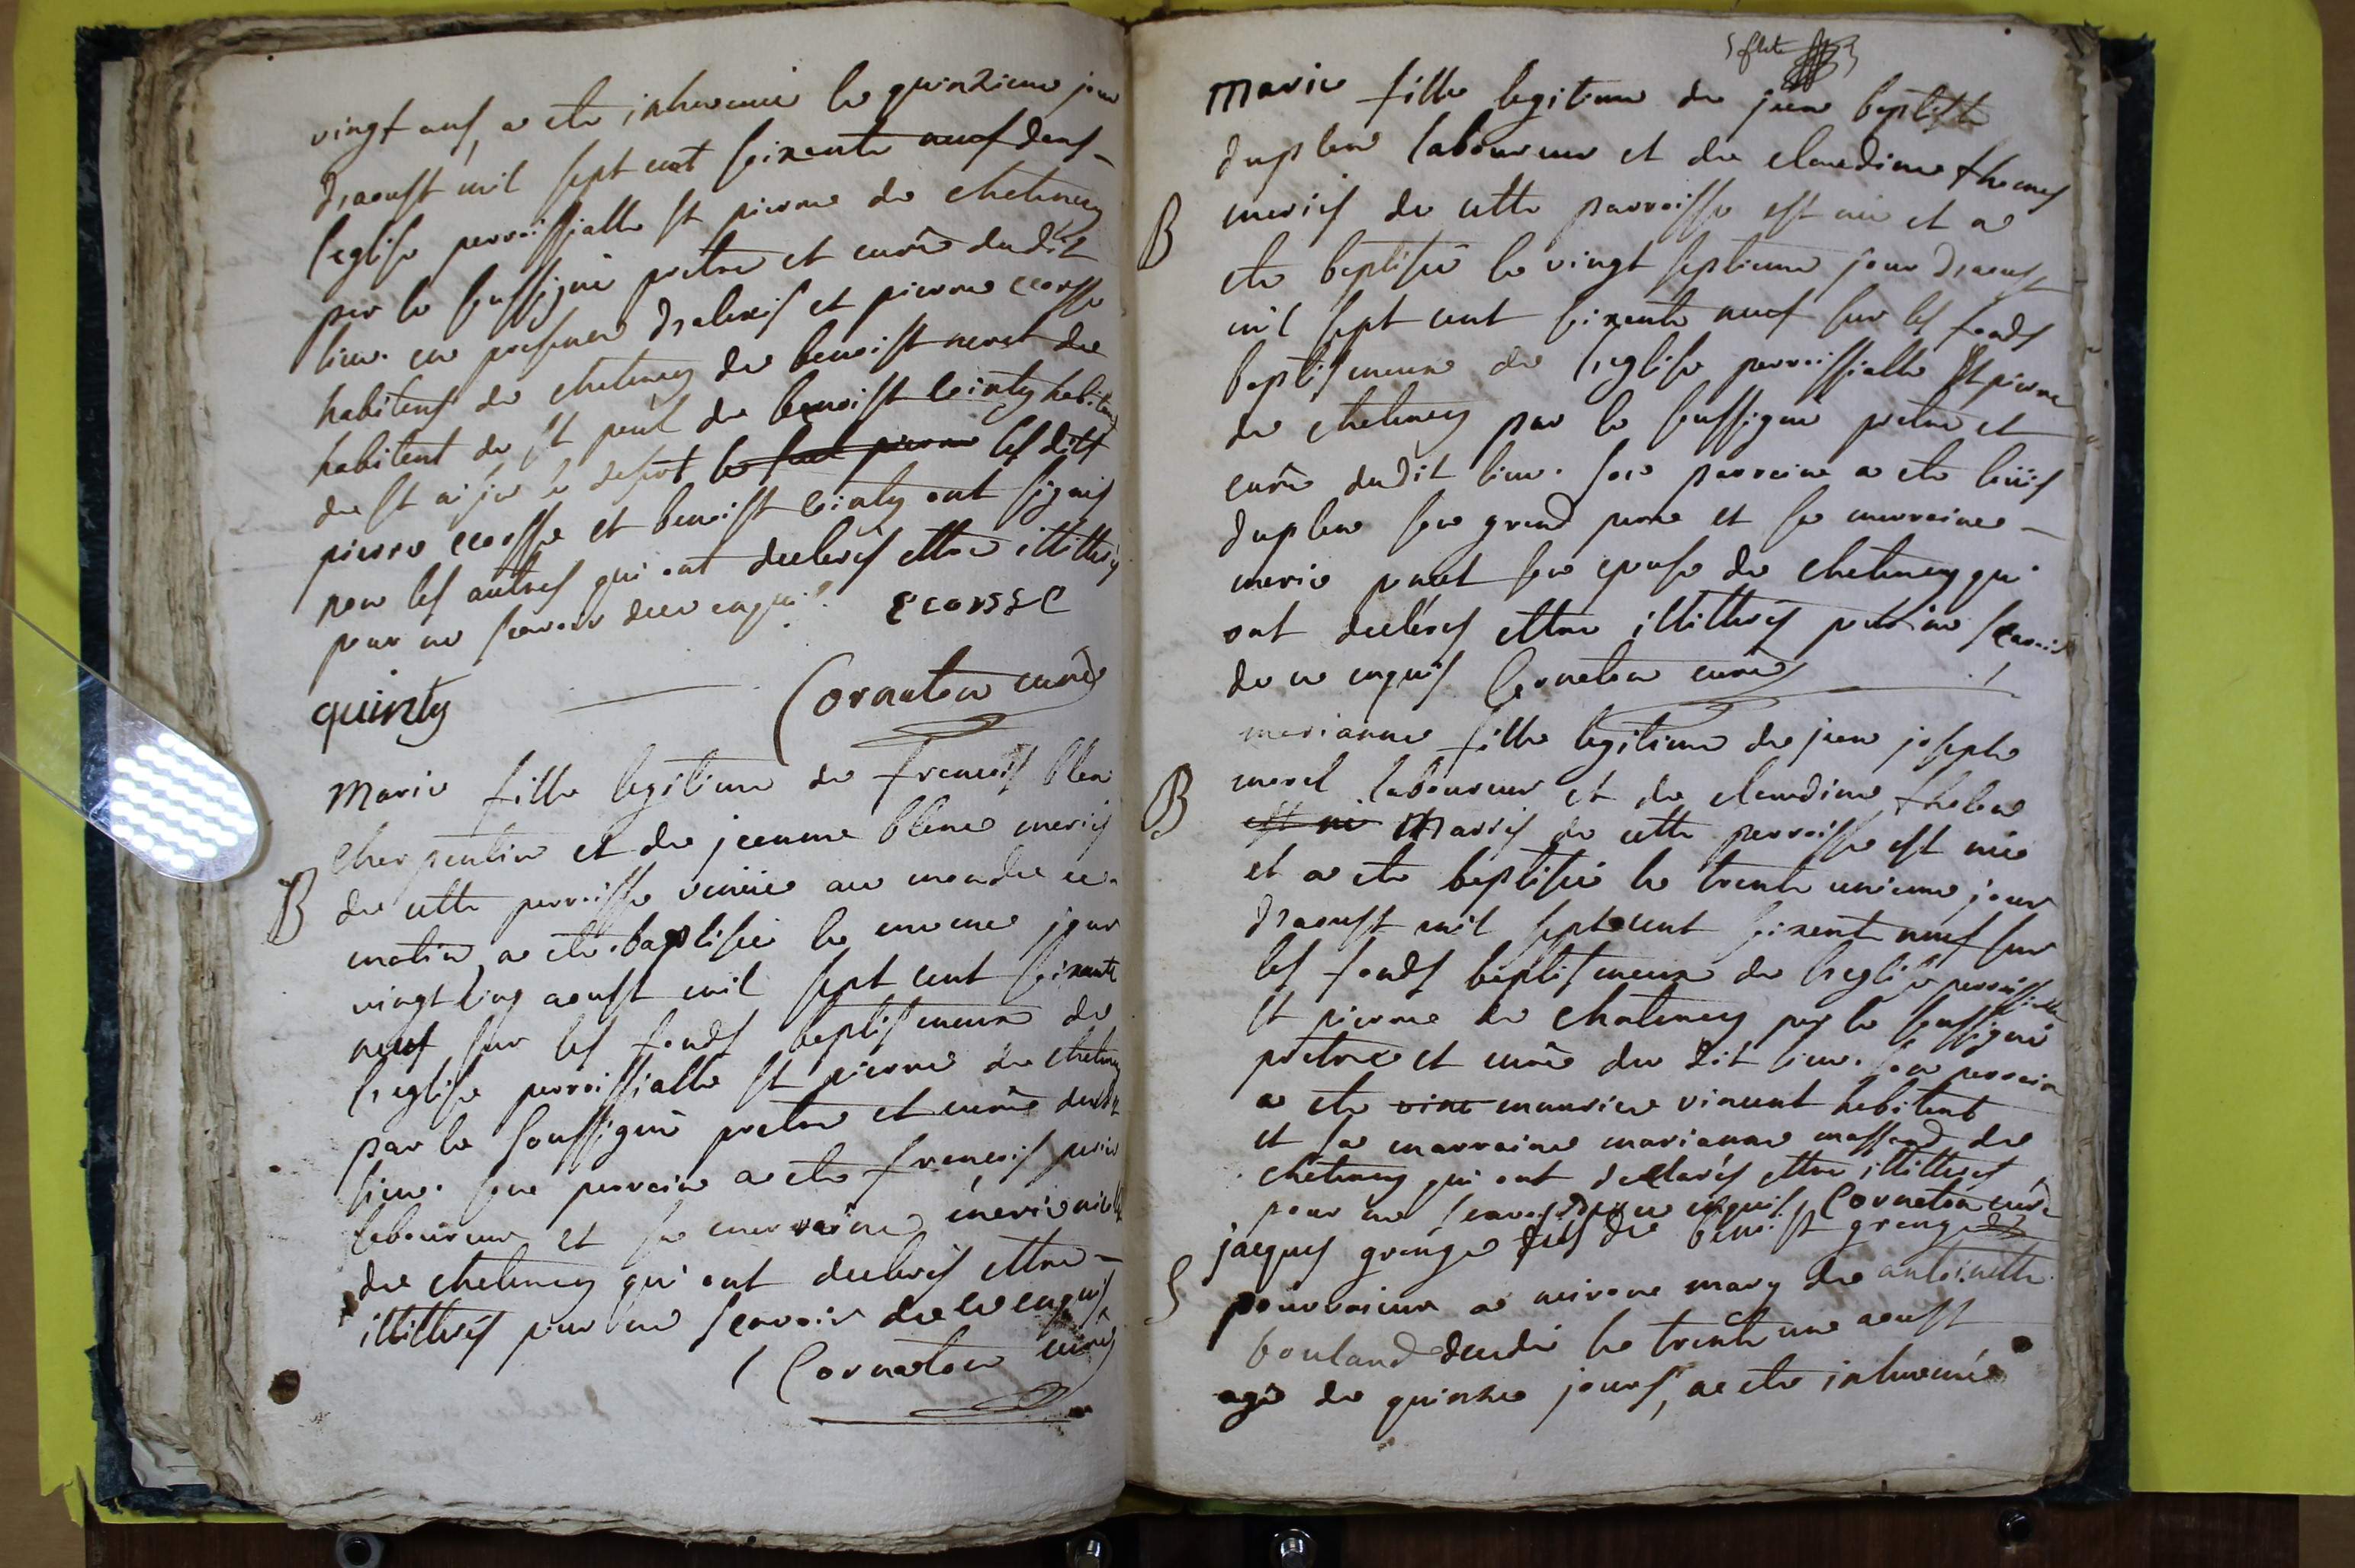 vingt ans, a ete inhumée le quinzieme jour
d'aoust mil sept cent soixante neuf dans
l'eglise parroissialle st pierre de chatenay
par le soussigné pretre et curé dudit
lieu. en presence d'alexis et pierre ecosse
habitans de chatenay de benoist neret de
habitant de st paul de benoist cinty habitant
de st les dits
pierre ecorsse et benoist cinty ont signés
non les autres qui ont declarés ettre illitterés
pour ne scavoir de ce enquis. ecorsse
quinty Cornaton curé
Marie fille legitime de francois blan
charpentier et de jeanne blanc mariés
B de cette parroisse venüe au monde ce
matin, a ete baptisée le meme jour
vingt cinq aoust mil sept cent soixante
neuf sur les fonds baptismaux de
l'eglise parroissialle st pierre de chatenay
par le soussigné pretre et curé dudit
lieu. son parrain a ete francois
laboureur et sa marraine marie
de chatenay qui ont declarés ettre
illitterés pour ne scavoir de ce enquis
Cornaton curé
Marie fille legitime de jean baptiste
duplan laboureur et de claudine thomas
B mariés de cette parroisse est née et a
ete baptisée le vingt septieme jour d'aoust
mil sept cent soixante neuf sur les fonds
baptismaux de l'eglise parroissialle st pierre
de chatenay par le soussigné pretre et
curé dudit lieu. son parrain a ete loüis
duplan son grand pere et sa marraine
marie son epouse de chatenay qui
ont declarés ettre illitterés pour ne scavoir
de ce enquis Cornaton curé
marianne fille legitime de jean joseph
morel laboureur et de claudine
B est né Mariés de cette parroisse est née
et a ete baptisée le trente unieme jour
d'aoust mil sept cent soixante neuf sur
les fonds baptismaux de l'eglise parroissialle
st pierre de chatenay par le soussigné
pretre et curé du dit lieu. son parrain
a ete vinc maurice vincent habitant
et sa marraine marianne de
chatenay qui ont declarés ettre illitterés
pour ne scavoir de ce enquis, Cornaton curé
jacques grange fils de benoist grange
S a mary de antoinette
bouland decedé le trente une aoust
agé de quinze jours, a ete inhumé